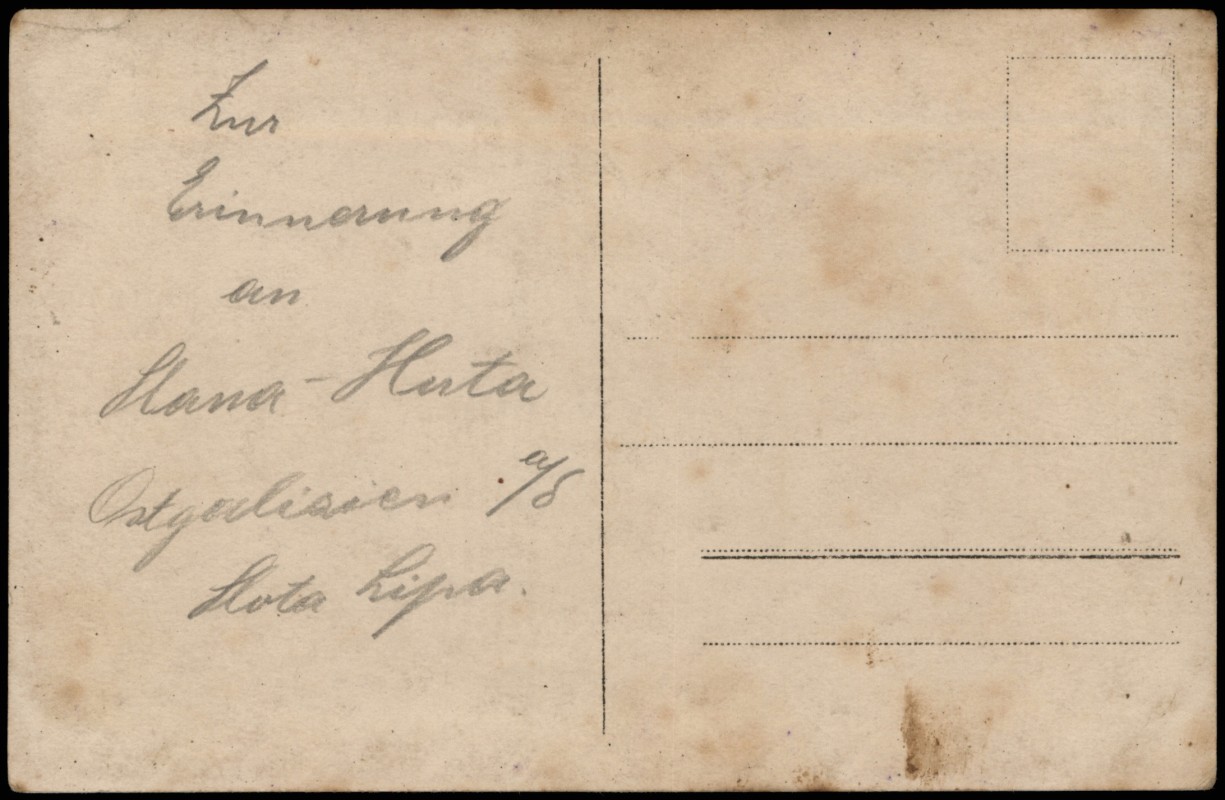 Zur
Erinnerung
an
- Huta
Ostgalizien a/d
Slota Lipa.